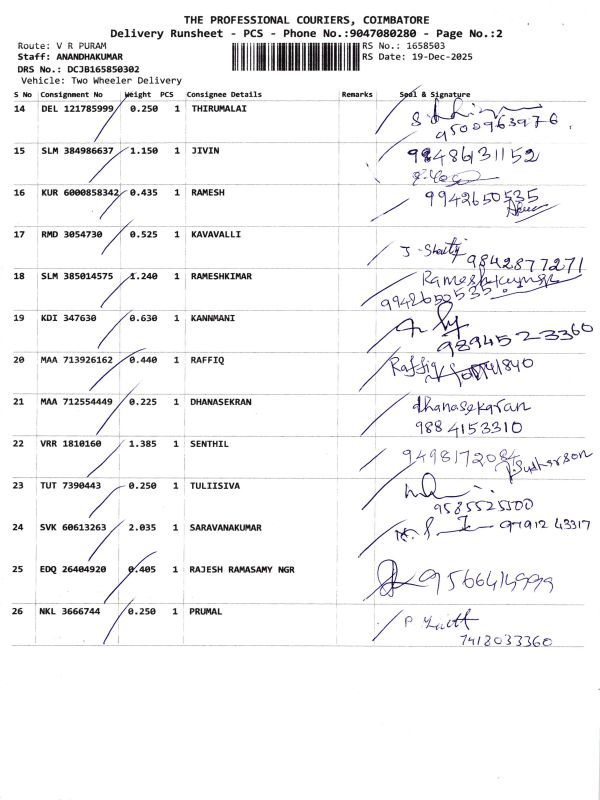 THE PROFESSIONAL COURIERS, COIMBATORE
Delivery Runsheet - PCS - Phone No.:9047080280 - Page No.:2
Route: V R PURAM RS No.: 1658503
Staff: ANANDHAKUMAR RS Date: 19-Dec-2025
DRS No.: DCJB165850302
Vehicle: Two Wheeler Delivery
S No Consignment No Weight PCS Consignee Details Remarks Seal & Signature
14 DEL 121785999 0.250 1 THIRUMALAI
9500963976
15 SLM 384986637 1.150 1 JIVIN
9486131152
16 KUR 6000858342 0.435 1 RAMESH 9942650535
17 RMD 3054730 0.525 1 KAVAVALLI
9842877271
18 SLM 385014575 1.240 1 RAMESHKIMAR Rameshkumar
9942650535
19 KDI 347630 0.630 1 KANNMANI
9894523360
20 MAA 713926162 0.440 1 RAFFIQ Raffiq
21 MAA 712554449 0.225 1 DHANASEKRAN dhanasekaran
9884153310
22 VRR 1810160 1.385 1 SENTHIL 9498172084
23 TUT 7390443 0.250 1 TULIISIVA
9585525500
24 SVK 60613263 2.035 1 SARAVANAKUMAR 97912 43317
25 EDQ 26404920 0.405 1 RAJESH RAMASAMY NGR
26 NKL 3666744 0.250 1 PRUMAL
7418033360